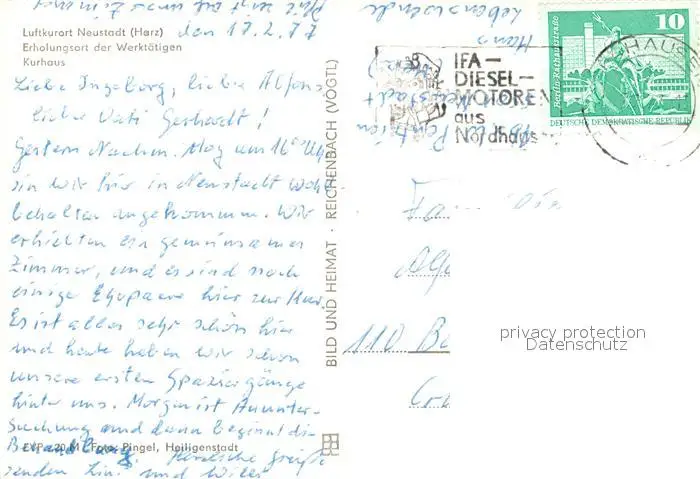 Luftkurort Neustadt (Harz)
Erholungsort der Werktätigen
Kurhaus
den 17.2.77
Liebe Ingeborg, liebe Alfons
liebe Vati Gerhardt!
Gestern Nachm. Mog um 16 Uhr
sin wir hir in Neustadt woh
behalten angekommen. Wir
erhielten ein gemeinsames
Zimmer, und es sind noch
einige Ehepaare hier zur Kur.
Es ist alles sehr schön hier
und heute haben wir schon
unsere ersten Spaziergänge
hinter uns. Morgen ist Aunter-
suchung und dann beginnt die
Behandlung. Herzliche Grüße
senden und Willi
EVP -,20 M Foto: Pingel, Heiligenstadt
BILD UND HEIMAT · REICHENBACH (VOGTL)
IFA-
DIESEL-
MOTOREN
aus
Nordhaus
10
Berlin, Rathausstraße
DEUTSCHE DEMOKRATISCHE REPUBLIK
HAUSE
Fa
Alf
110 Be
privacy protection
Datenschutz